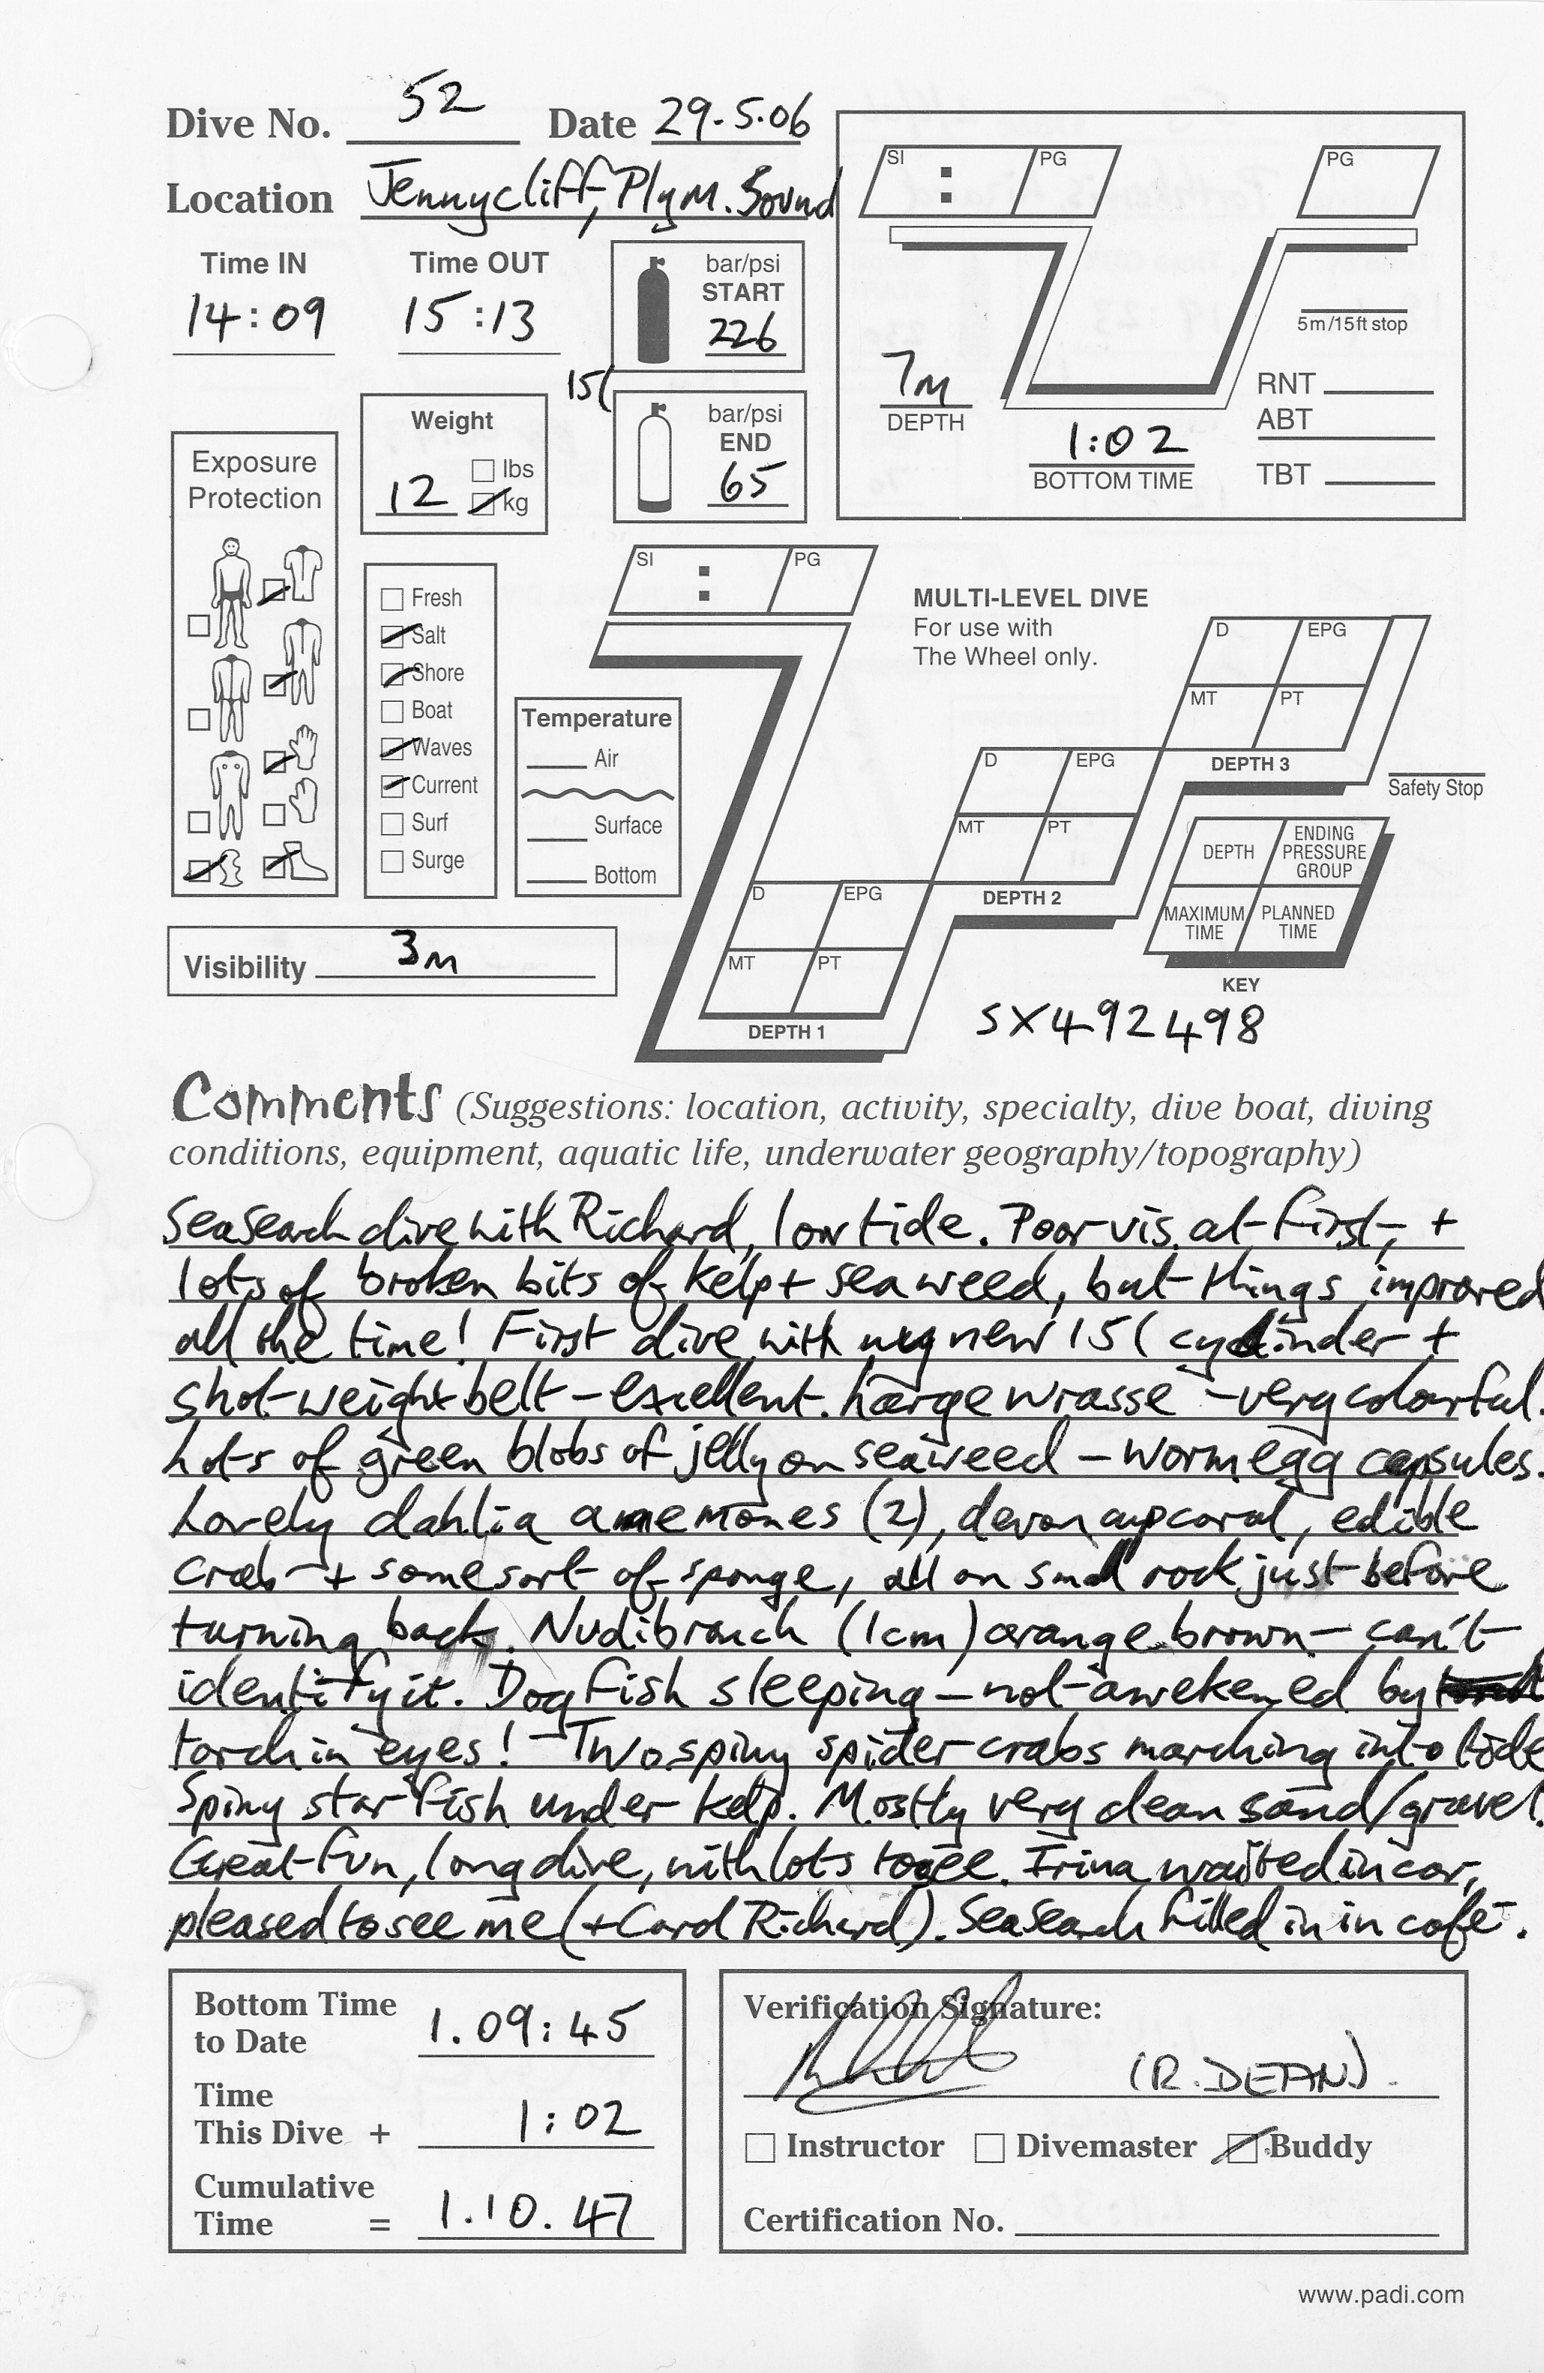 Dive No. 52 Date 29.5.06
Location Jennycliff, Plym. Sound
Time IN Time OUT
14:09 15:13
bar/psi
START
226
15l
bar/psi
END
65
SI : PG PG
5m/15ft stop
7m
DEPTH
1:02
BOTTOM TIME
RNT
ABT
TBT
Weight
lbs
12 kg
Exposure
Protection
Fresh
Salt
Shore
Boat
Waves
Current
Surf
Surge
Temperature
Air
Surface
Bottom
Visibility 3m
SI : PG
MULTI-LEVEL DIVE
For use with
The Wheel only.
D EPG
MT PT
DEPTH 3
D EPG
MT PT
DEPTH 2
D EPG
MT PT
DEPTH 1
Safety Stop
DEPTH ENDING PRESSURE GROUP
MAXIMUM TIME PLANNED TIME
KEY
SX492498
Comments (Suggestions: location, activity, specialty, dive boat, diving
conditions, equipment, aquatic life, underwater geography/topography)
Seasearch dive with Richard, low tide. Poor vis. at first, +
lots of broken bits of kelp + seaweed, but things improved
all the time! First dive with my new 15l cylinder +
shot-weight belt – excellent. Large wrasse – very colourful.
Lots of green blobs of jelly on seaweed – worm egg capsules.
Lovely dahlia anemones (2), devon cup coral, edible
crab + some sort of sponge, all on small rock just before
turning back. Nudibranch (1cm) orange brown – can't
identify it. Dogfish sleeping – not awekened by
torch in eyes! Two spiny spider crabs marching into tide
Spiny starfish under kelp. Mostly very clean sand/gravel.
Great fun, long dive, with lots to see. Irina waited in car,
pleased to see me (+ Carol Richard). Seasearch filled in in café.
Bottom Time
to Date 1.09:45
Time
This Dive + 1:02
Cumulative
Time = 1.10.47
Verification Signature:
(R. DEAN).
Instructor Divemaster Buddy
Certification No.
www.padi.com